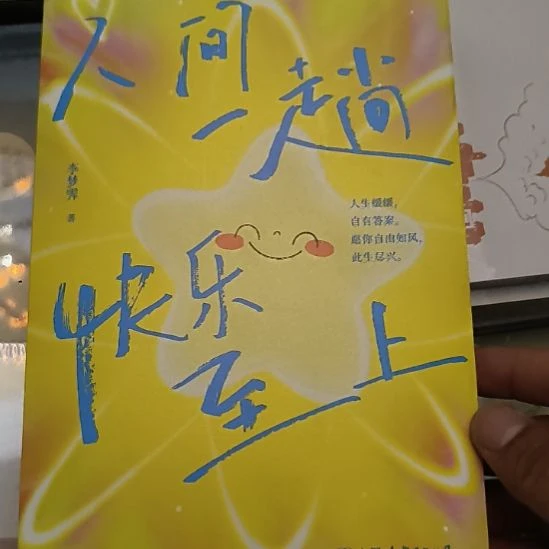 人间
一趟
快乐
至上
李梦霁 著
人生缓缓，
自有答案。
愿你自由如风，
此生尽兴。